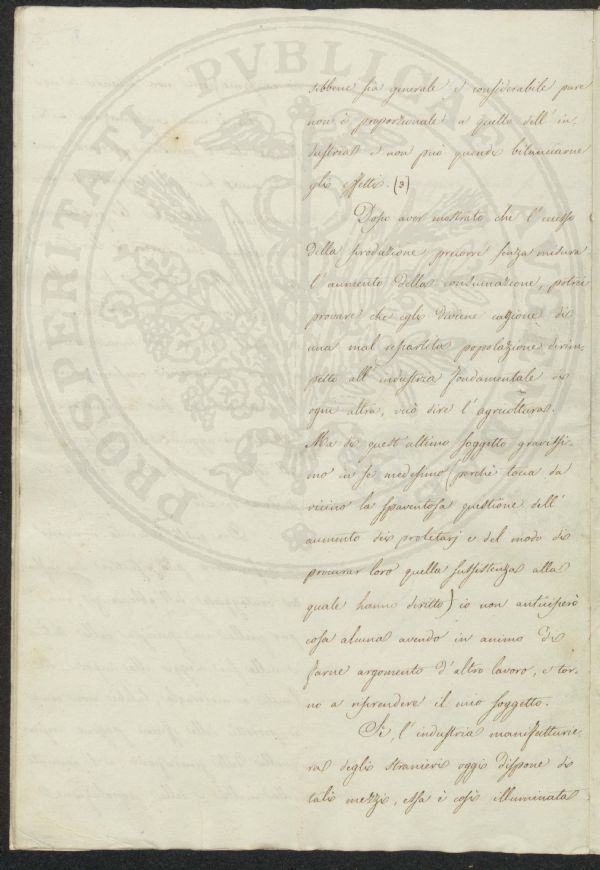 sebbene sia generale e considerabile pure
non è proporzionale a quello dell' in-
dustria e non può quindi bilanciarne
gli effetti. (3)
Dopo aver mostrato che l'eccesso
della produzione precorre senza misura
l'aumento della consumazione, potrei
provare che egli diviene cagione di
una mal repartita popolazione dirim-
petto all' industria fondamentale di
ogni altra, vuò dire l'agricoltura.
Ma di quest' ultimo soggetto gravissi-
mo in se medesimo (perchè tocca da
vicino la spaventosa questione dell'
aumento dei proletarj e del modo di
procurar loro quella sussistenza alla
quale hanno diritto) io non anticiperò
cosa alcuna avendo in animo di
farne argomento d'altro lavoro, e tor-
no a riprendere il mio soggetto.
Si, l'industria manifatturie-
ra degli stranieri oggi dispone di
tali mezzi, essa è così illuminata
PROSPERITATI PVBLICAE